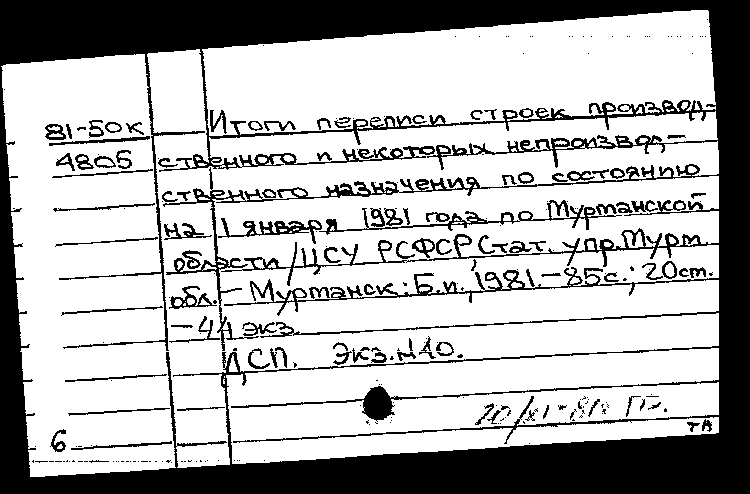 81-50к Итоги переписи строек производ-
4805 ственного и некоторых непроизвод-
ственного назначения по состоянию
на 1 января 1981 года по Мурманской
области / ЦСУ РСФСР, Стат. упр. Мурм.
обл. – Мурманск: Б.и., 1981. – 85с.; 20см.
– 44 экз.
ДСП. Экз. N40.
20/XI-81г. ГБ.
6 тА